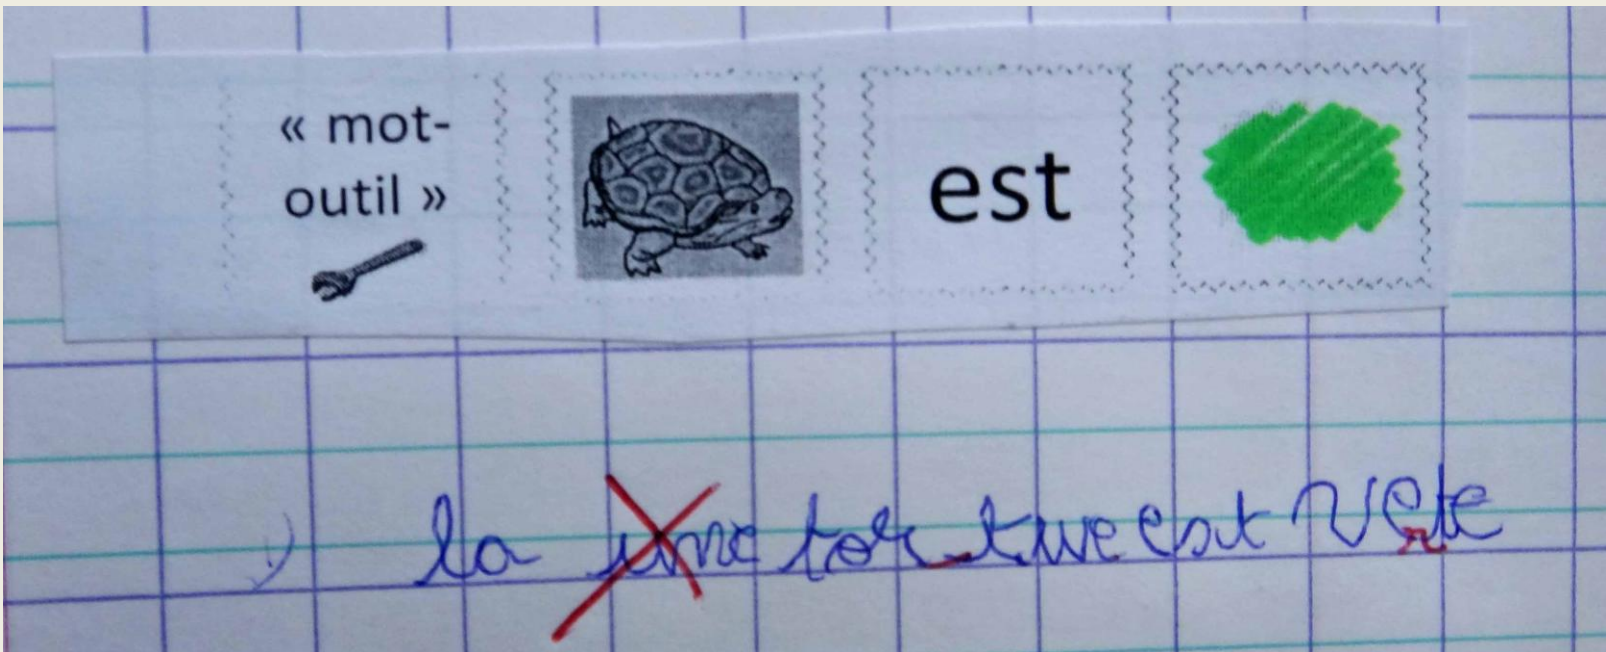 « mot-
outil »
est
la une tor tue est vete